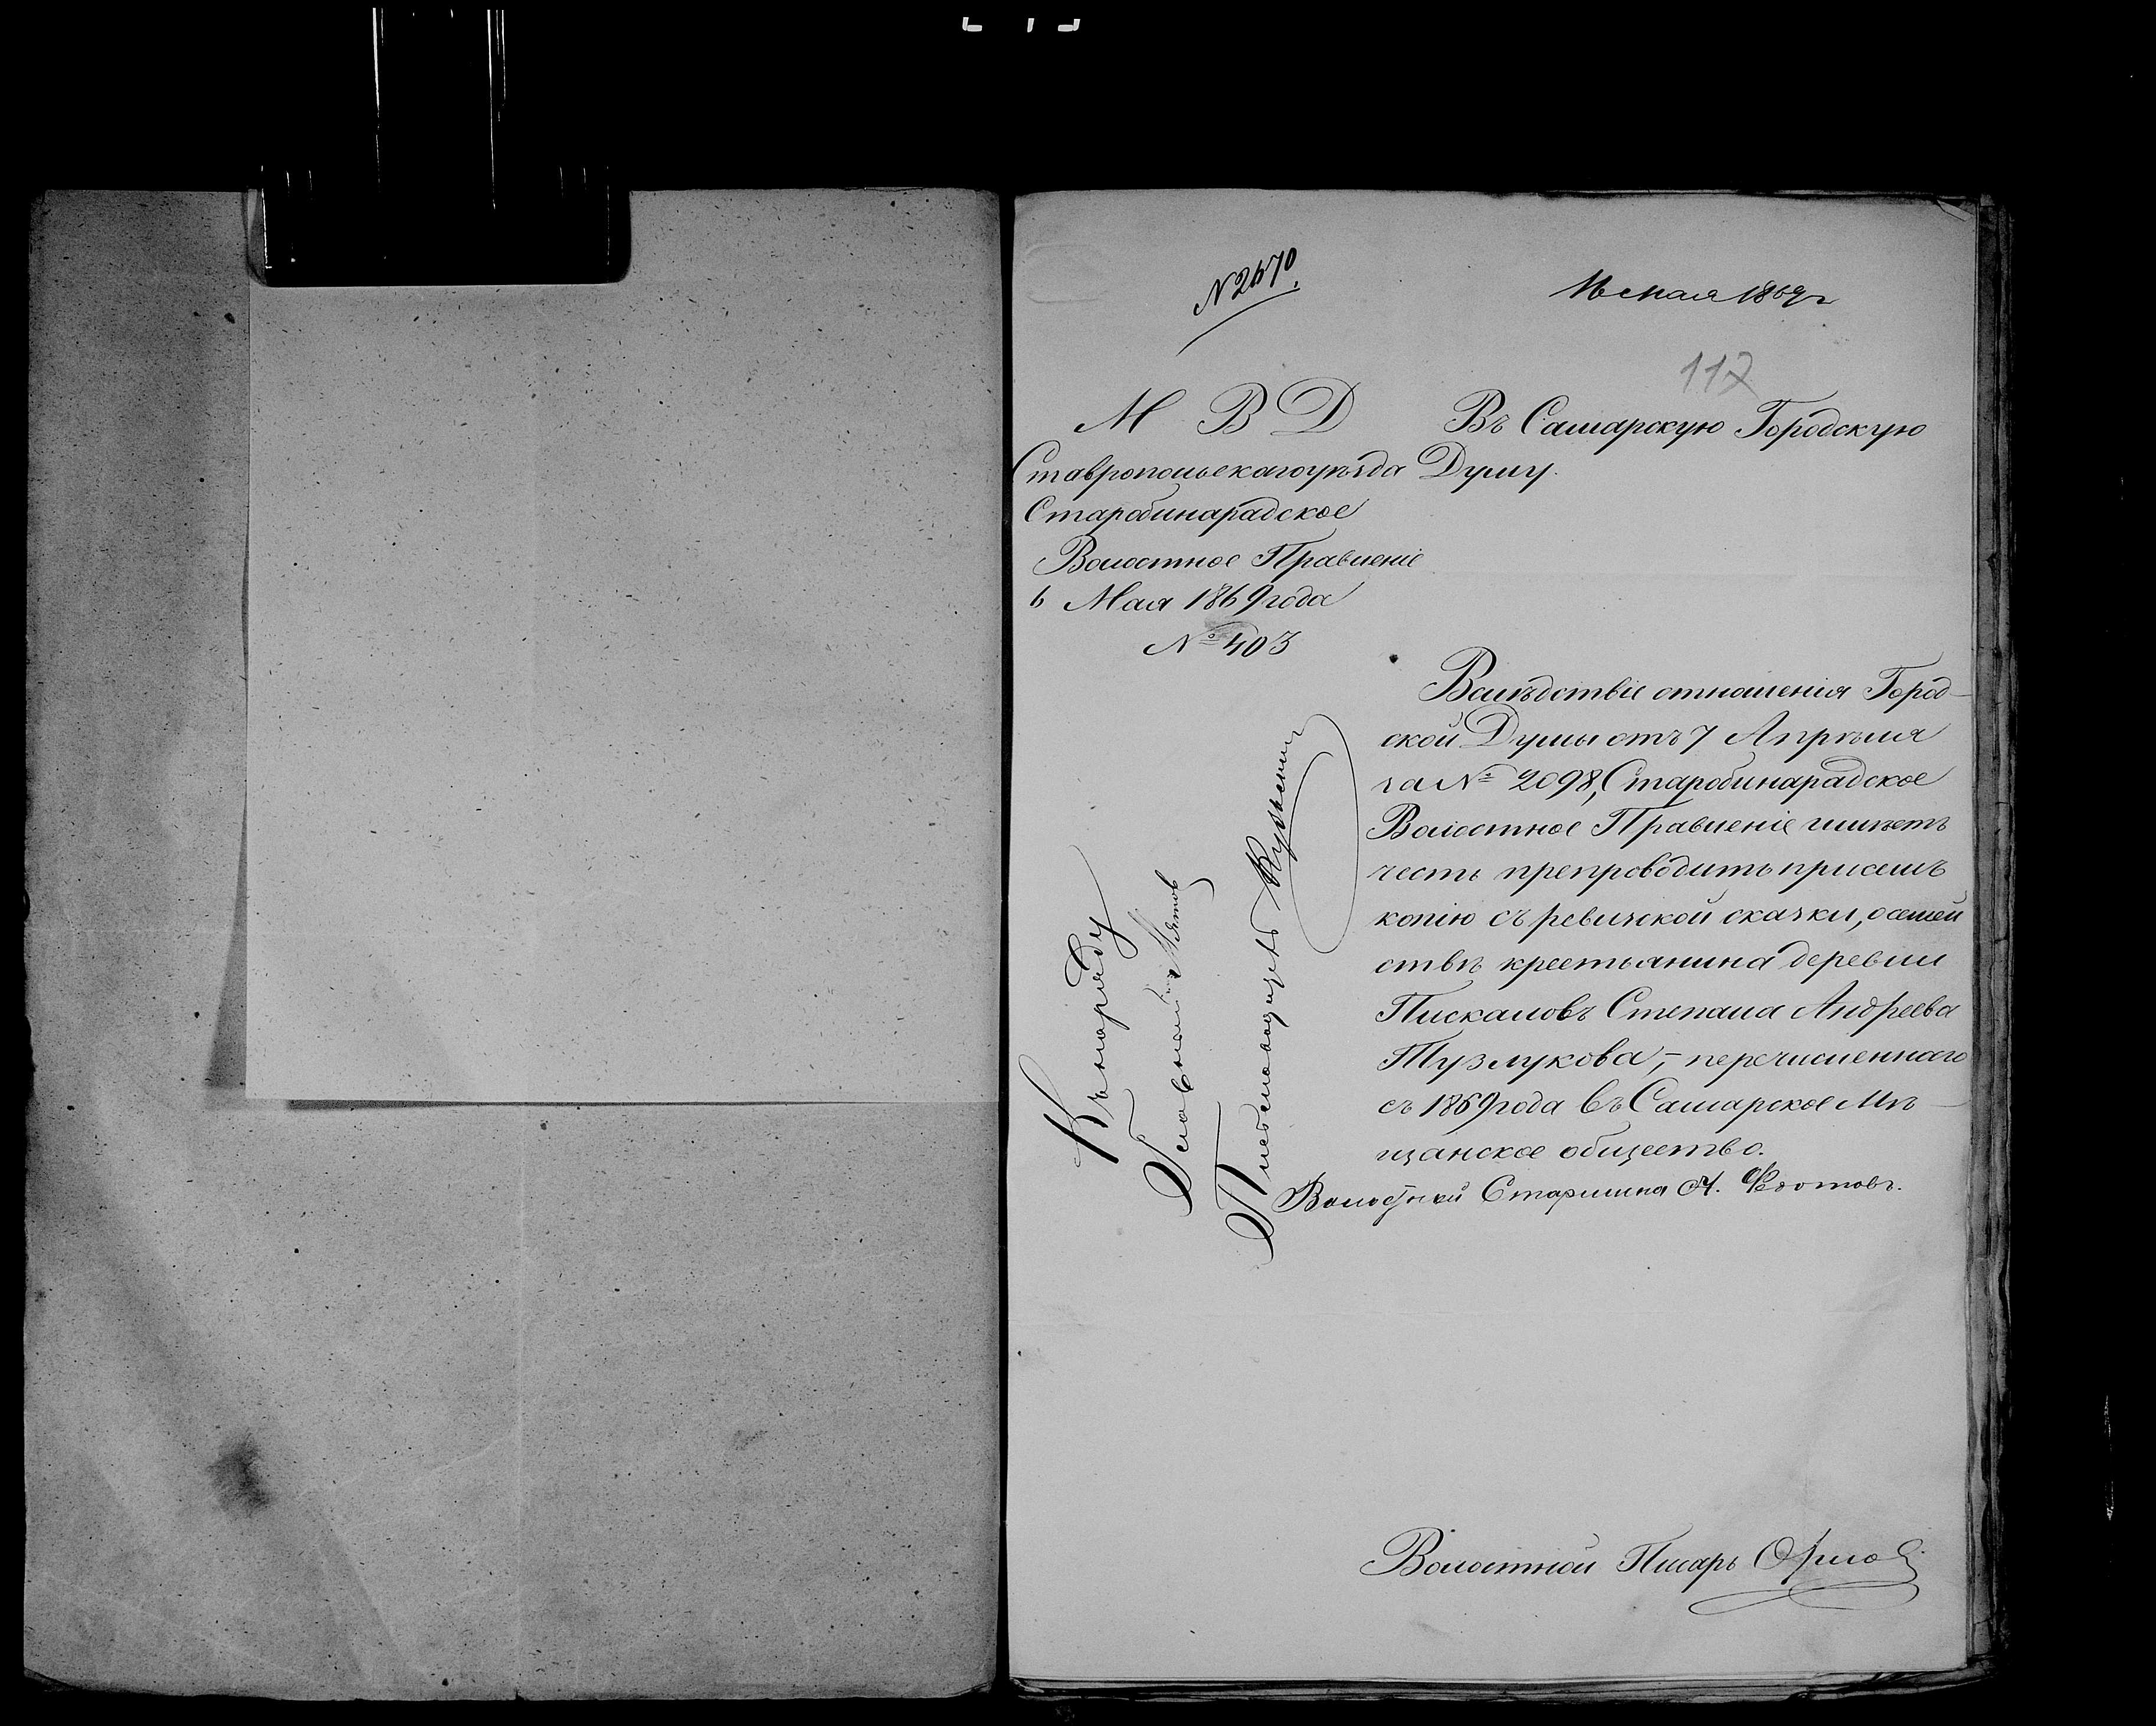 N 2670.
16 мая 1869 г
117
М В Д
Ставропольскаго уѣзда
Старобинарадское
Волостное Правленіе
6 Мая 1869 года
№ 403
Въ Самарскую Городскую
Думу.
Вслѣдствіе отношенія Город-
ской Думы отъ 7 Апрѣля
за № 2098, Старобинарадское
Волостное Правленіе имѣетъ
честь препроводить присемъ
копію съ ревизской сказки, о семей
ствѣ крестьянина деревни
Пискаловъ Степана Андреева
Тузлукова, - перечисленнаго
съ 1869 года въ Самарское Мѣ-
щанское общество.
Волостной Старшина А. Федотовъ.
Волостной Писарь Орлов
Къ наряду
Гласный
Письмоводитель